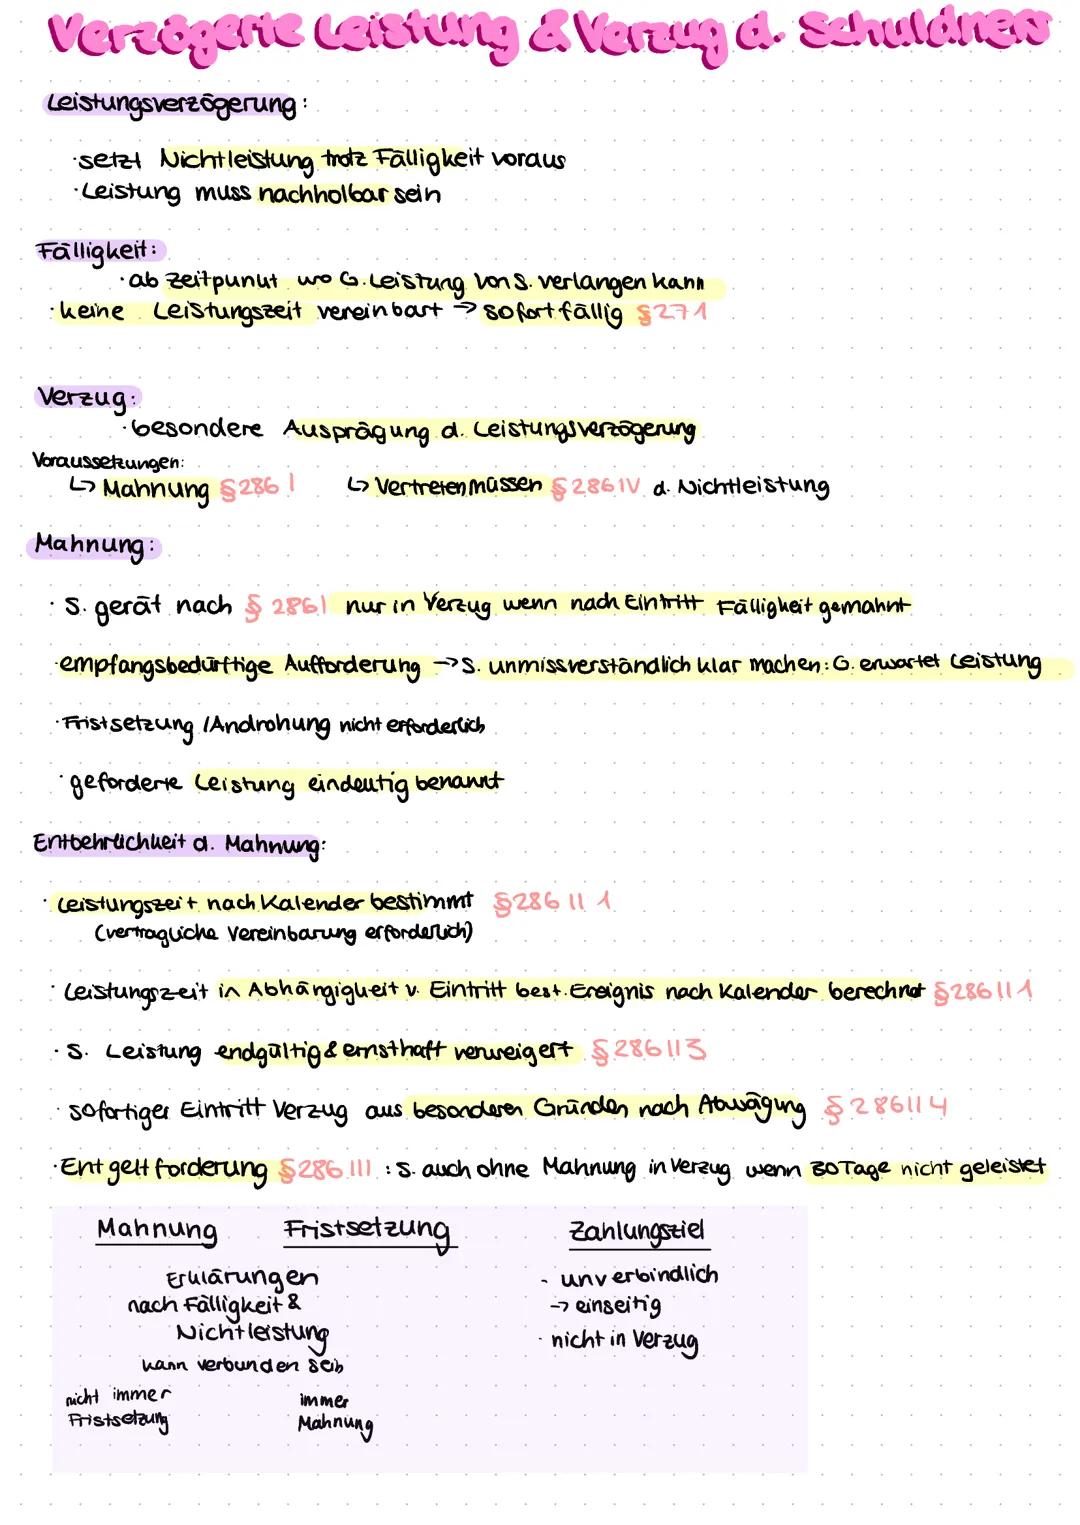 Verzögerte Leistung & Verzug d. Schuldners
Leistungsverzögerung:
·setzt Nichtleistung trotz Fälligkeit voraus
·Leistung muss nachholbar sein
Fälligkeit:
·ab Zeitpunkt wo G. Leistung von S. verlangen kann
·keine Leistungszeit vereinbart → sofort fällig §271
Verzug:
·besondere Ausprägung d. Leistungsverzögerung
Voraussetzungen:
↳ Mahnung §286 I ↳ Vertretenmüssen §286 IV d. Nichtleistung
Mahnung:
· S. gerät nach § 286 I nur in Verzug wenn nach Eintritt Fälligkeit gemahnt
·empfangsbedürftige Aufforderung → S. unmissverständlich klar machen: G. erwartet Leistung
·Fristsetzung /Androhung nicht erforderlich
·geforderte Leistung eindeutig benannt
Entbehrlichkeit d. Mahnung:
· Leistungszeit nach Kalender bestimmt §286 II 1
(vertragliche Vereinbarung erforderlich)
· Leistungszeit in Abhängigkeit v. Eintritt best. Ereignis nach Kalender berechnet §286 II 1
· S. Leistung endgültig & ernsthaft verweigert §286 II 3
· sofortiger Eintritt Verzug aus besonderen Gründen nach Abwägung §286 II 4
·Entgeltforderung §286 III : S. auch ohne Mahnung in Verzug wenn 30 Tage nicht geleistet
Mahnung Fristsetzung Zahlungsziel
Erklärungen
nach Fälligkeit &
Nichtleistung
kann verbunden sein
nicht immer
Fristsetzung
immer
Mahnung
- unverbindlich
→ einseitig
· nicht in Verzug